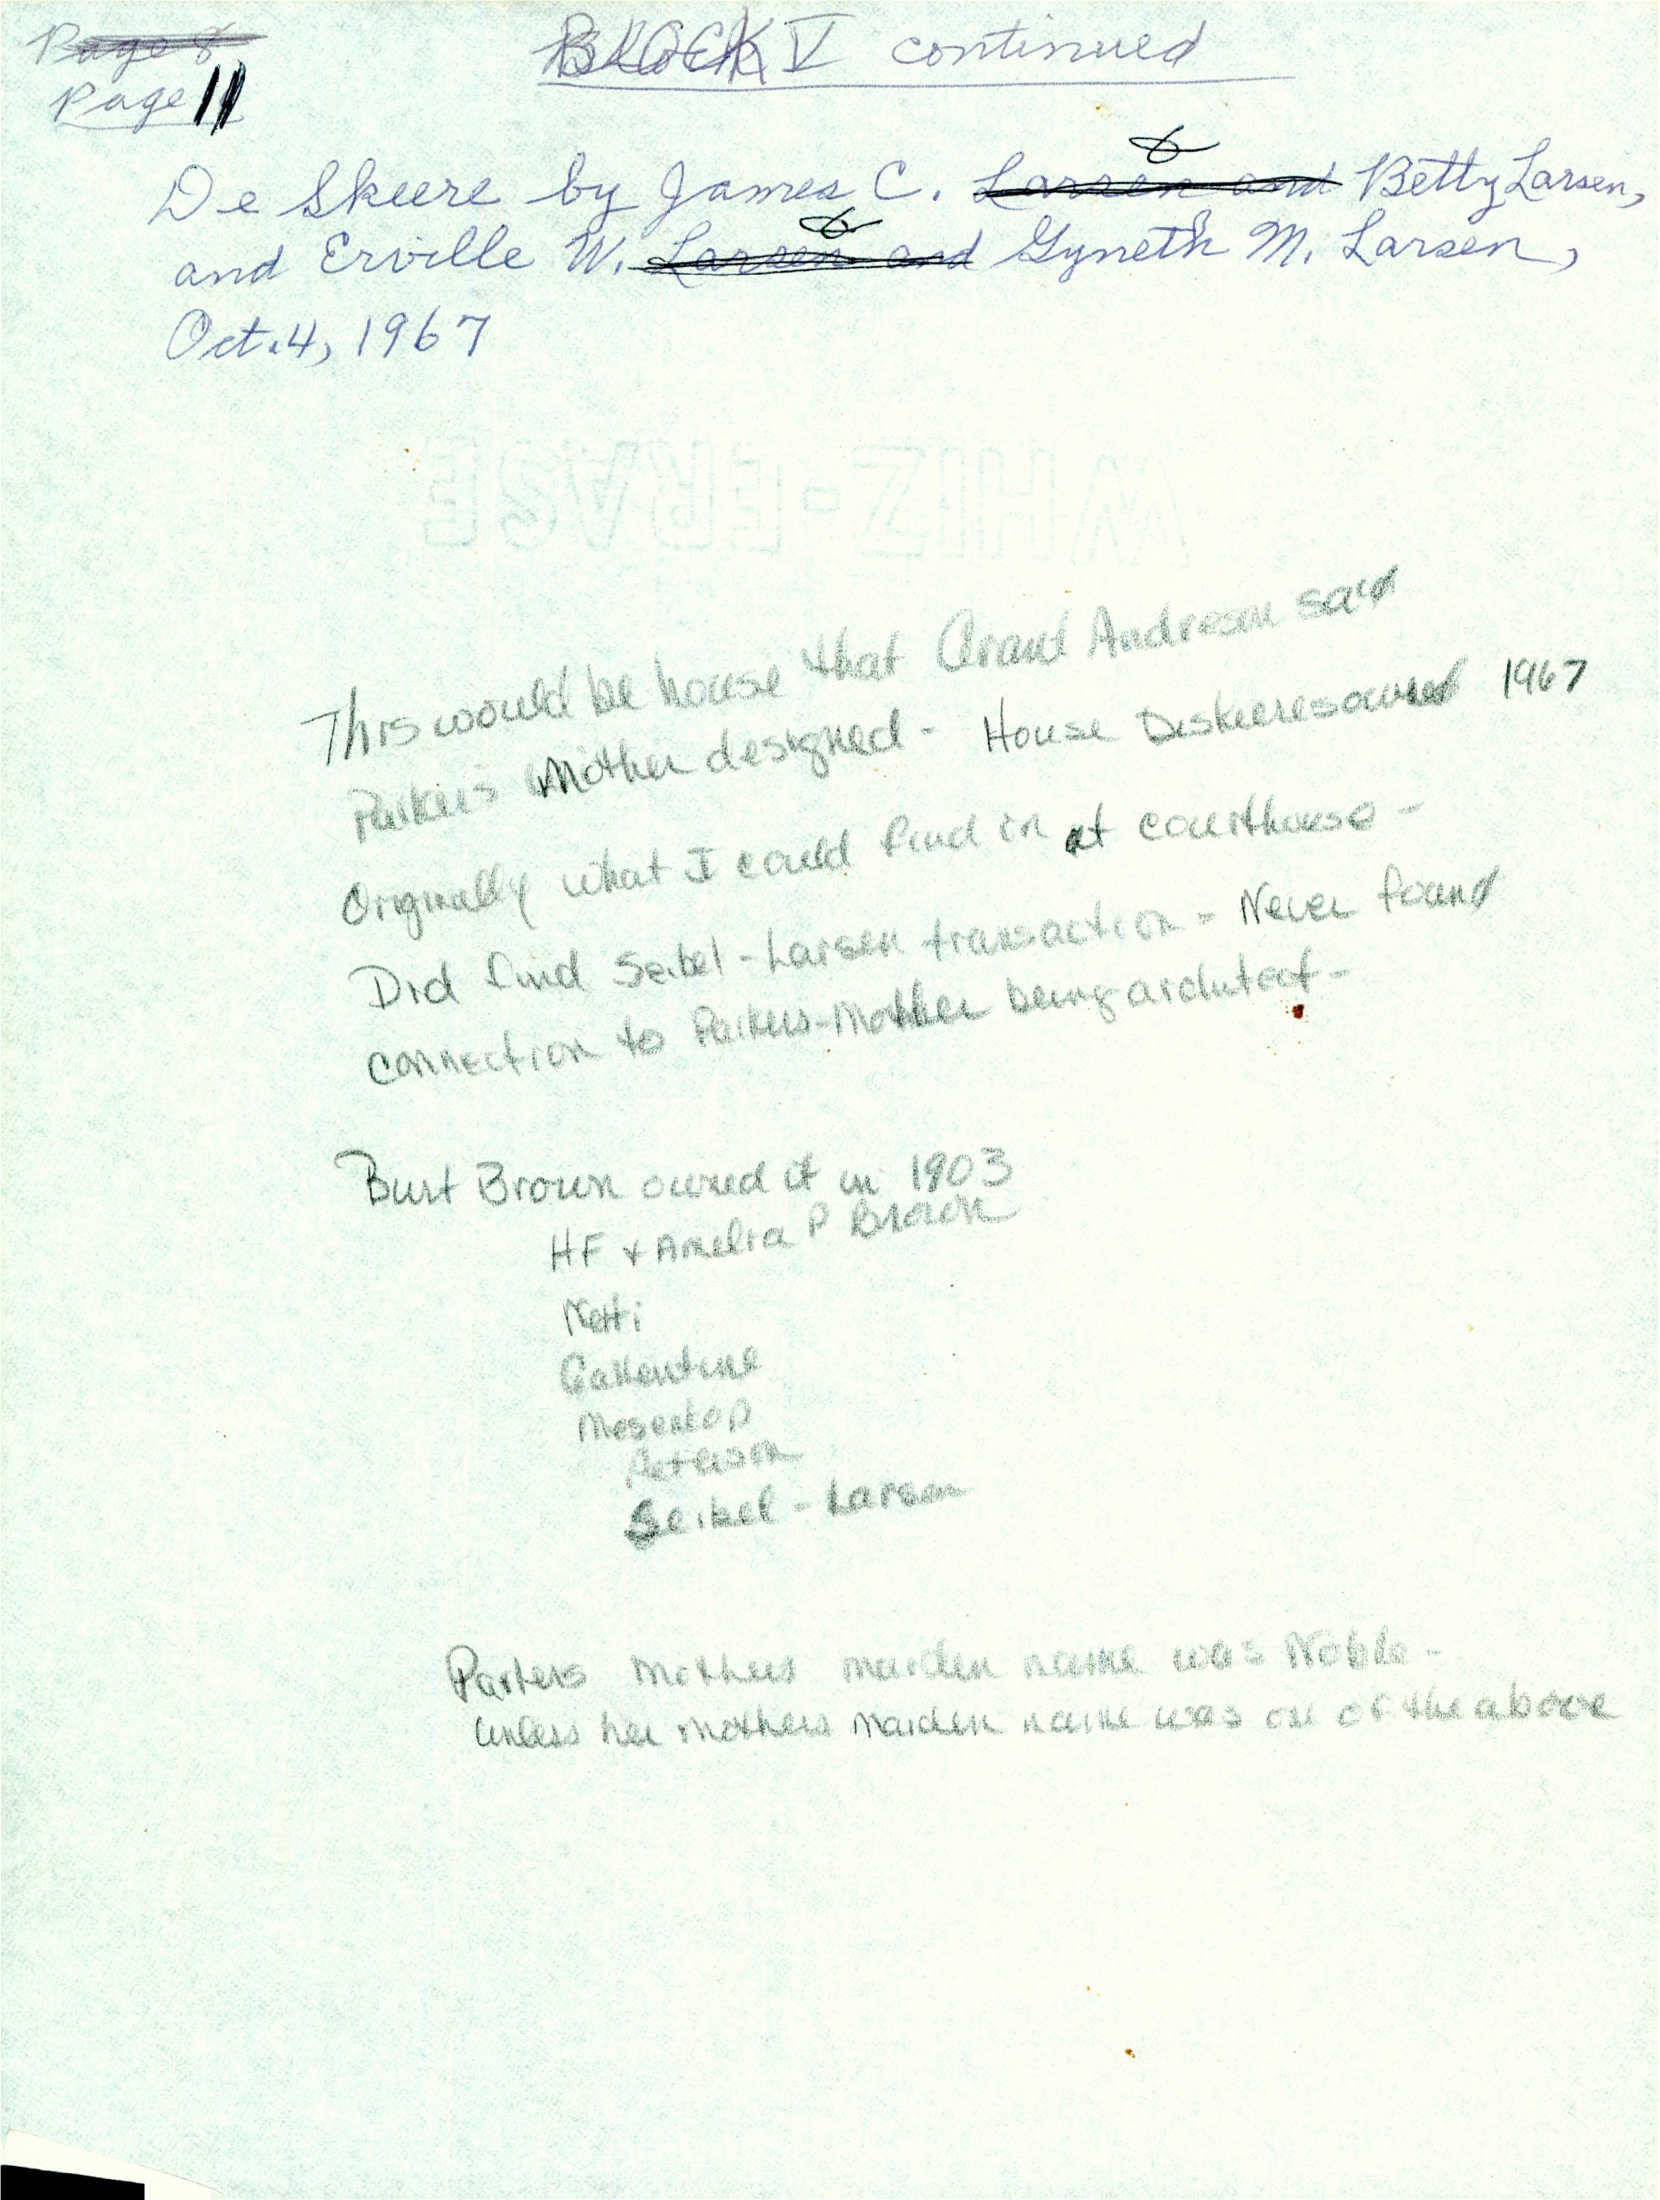 Page 8
Page 11
BLOCK V continued
De Skeere by James C. Larsen and & Betty Larsen,
and Erville W. Larsen and & Gyneth M. Larsen,
Oct. 4, 1967
WHIZ-ERASE
This would be house that Andresen said
Parkers Mother designed - House Deskeeres owned 1967
Originally what I could find in at courthouse -
Did find Seibel - Larsen transaction - Never found
connection to Parkers - Mother being architect -
Burt Brown owned it in 1903
HF & Amelia P Brown
Netti
Gallentine
Mosentop
Peterson
Seibel - Larsen
Parkers mothers maiden name was Noble -
unless her mothers maiden name was on of the above